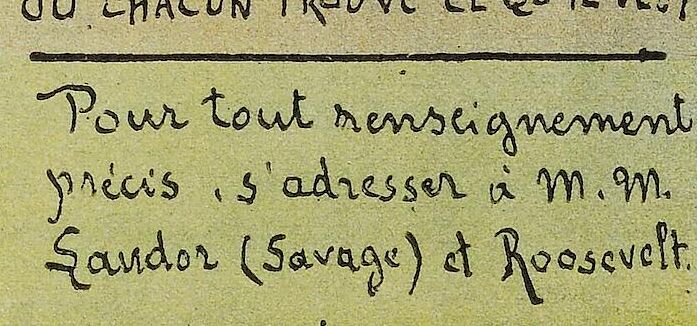 OU CHACUN TROUVE CE QU'IL VEUT
Pour tout renseignement
précis, s'adresser à M.M.
Landor (Savage) et Roosevelt.